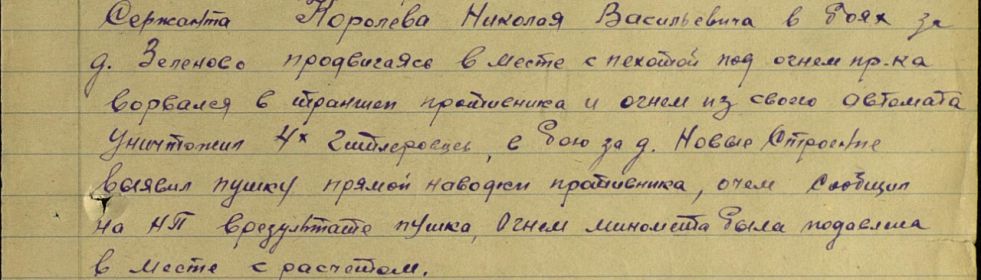 Сержанта Королёва Николая Васильевича в боях за
д. Зеленово продвигаясь в месте с пехотой под огнем пр-ка
ворвался в траншеи противника и огнем из своего автомата
уничтожил 4х гитлеровцев, в бою за д. Новые
выявил пушку прямой наводки противника, очем сообщил
на НП врезультате пушка, огнем миномета была подавлена
в месте с расчетом.